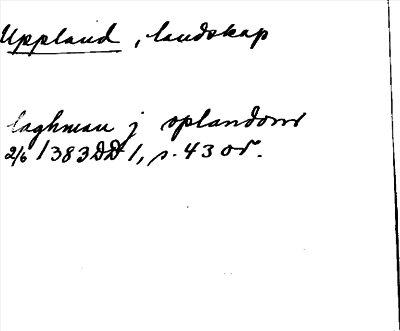 Uppland, landskap
laghman j oplandom
2/6 1383 DD 1, s. 43 or.